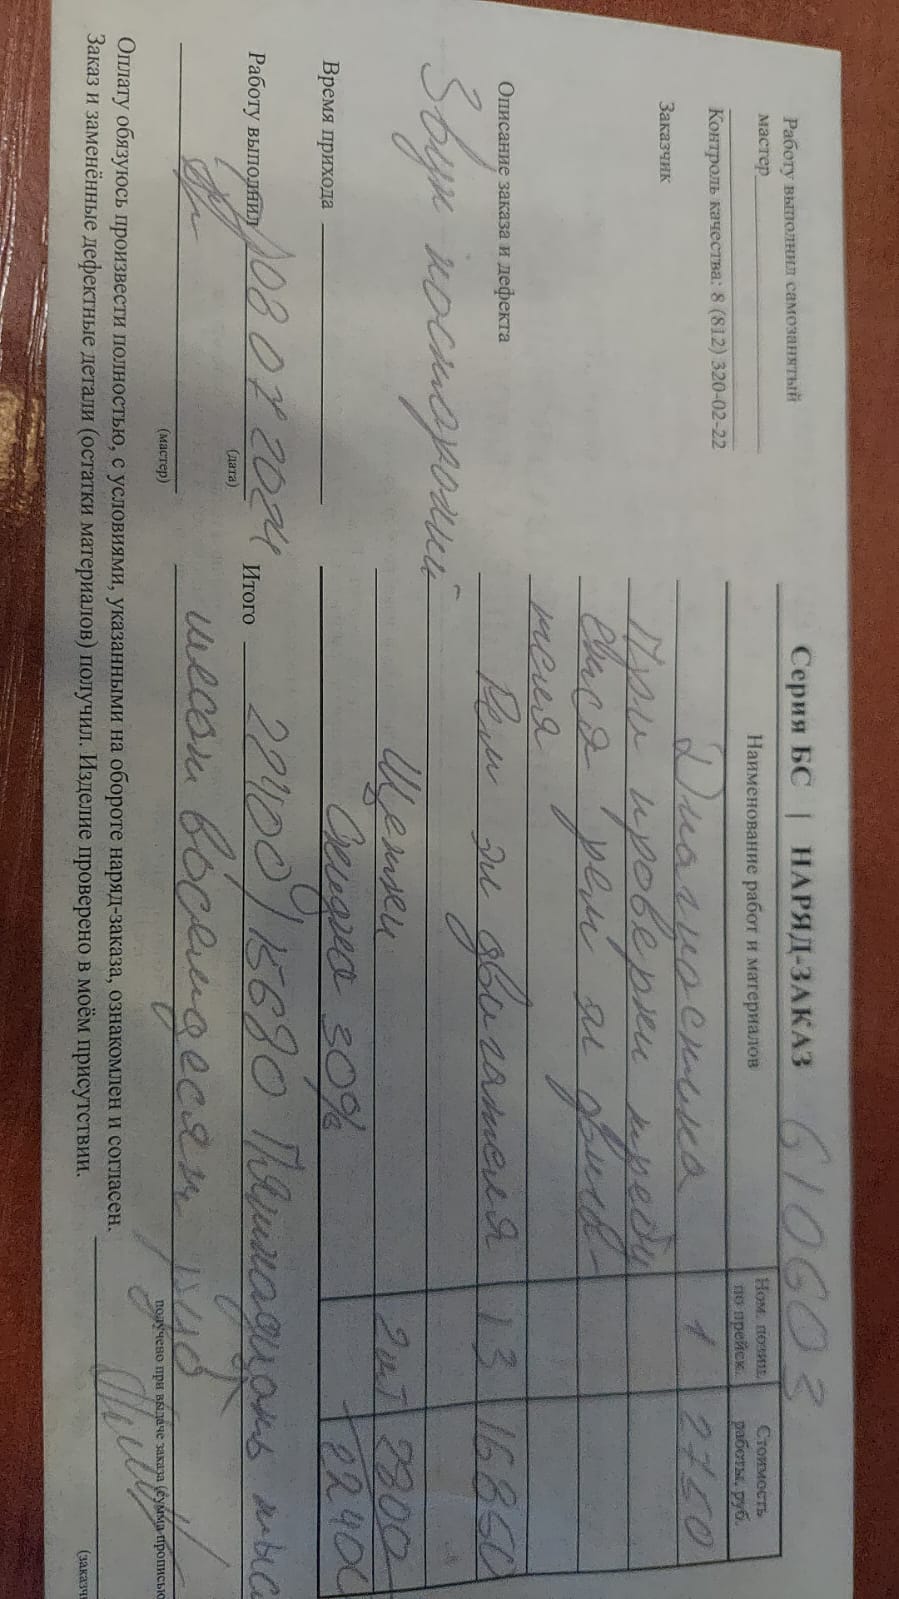 Серия БС | НАРЯД-ЗАКАЗ 610603
Работу выполнил самозанятый
мастер
Контроль качества: 8 (812) 320-02-22
Заказчик
Описание заказа и дефекта
Звук посторонний
Время прихода
Наименование работ и материалов
Ном. позиц. по прейск.
Стоимость работы, руб.
Диагностика 1 2750
При проверки требу
ется рем эл двига-
теля
Рем эл двигателя 13 16850
Щетки 2шт 2800
Скидка 30% 22400
Работу выполнил 08 07 2024 Итого 22400/15680 Пятнадцать тыс
(дата)
шестьсот восемьдесят руб
(мастер)
получено при выдаче заказа (сумма прописью
Оплату обязуюсь произвести полностью, с условиями, указанными на обороте наряд-заказа, ознакомлен и согласен.
Заказ и заменённые дефектные детали (остатки материалов) получил. Изделие проверено в моём присутствии.
(заказч